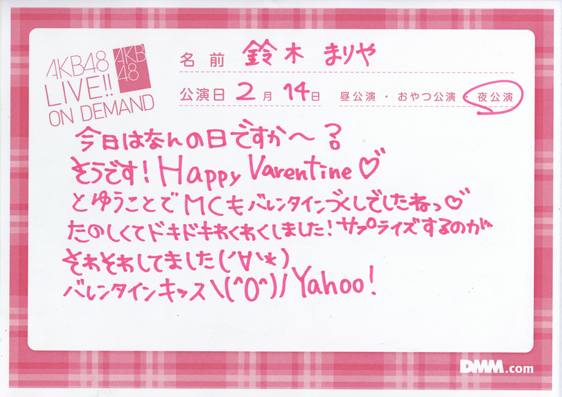 AKB48
LIVE!!
ON DEMAND
AKB
48
名前 鈴木 まりや
公演日 2月 14日 昼公演・おやつ公演・夜公演
今日はなんの日ですか〜?
そうです! Happy Varentine♡
とゆうことでMCもバレンタインづくしでしたねっ♡
たのしくてドキドキわくわくしました!サプライズするのが
そわそわしてました(´∀`*)
バレンタインキッス\(^O^)/Yahoo!
DMM.com